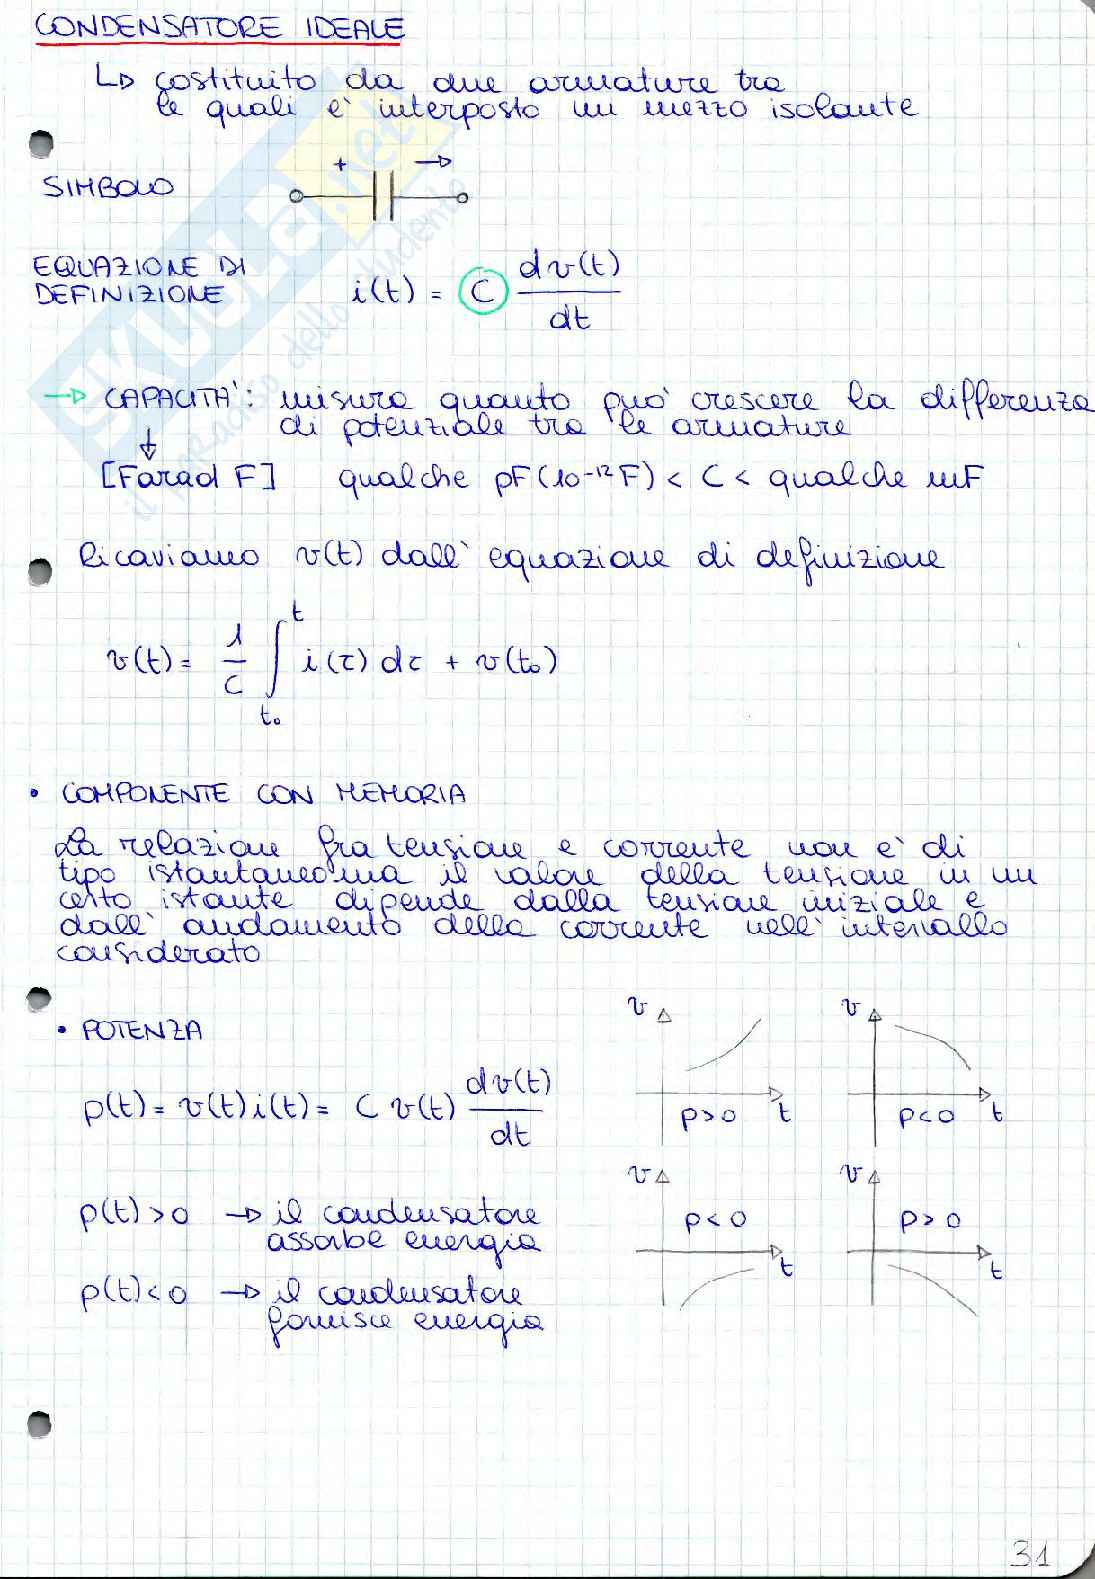 CONDENSATORE IDEALE
↳ costituito da due armature tra
le quali è interposto un mezzo isolante
+ →
SIMBOLO
EQUAZIONE DI
DEFINIZIONE
i(t) = C dv(t)/dt
→ CAPACITA': misura quanto può crescere la differenza
di potenziale tra le armature
↓
[Farad F] qualche pF (10⁻¹²F) < C < qualche mF
Ricaviamo v(t) dall'equazione di definizione
v(t) = 1/C ∫ₜ₀ᵗ i(τ) dτ + v(t₀)
• COMPONENTE CON MEMORIA
La relazione fra tensione e corrente non è di
tipo istantaneo ma il valore della tensione in un
certo istante dipende dalla tensione iniziale e
dall'andamento della corrente nell'intervallo
considerato
• POTENZA
p(t) = v(t) i(t) = C v(t) dv(t)/dt
p(t) > 0 → il condensatore
assorbe energia
p(t) < 0 → il condensatore
fornisce energia
v
p>0 t
v
p<0 t
v
p<0
t
v
p>0
t
31
SKUOLA.net
il paradiso dello studente